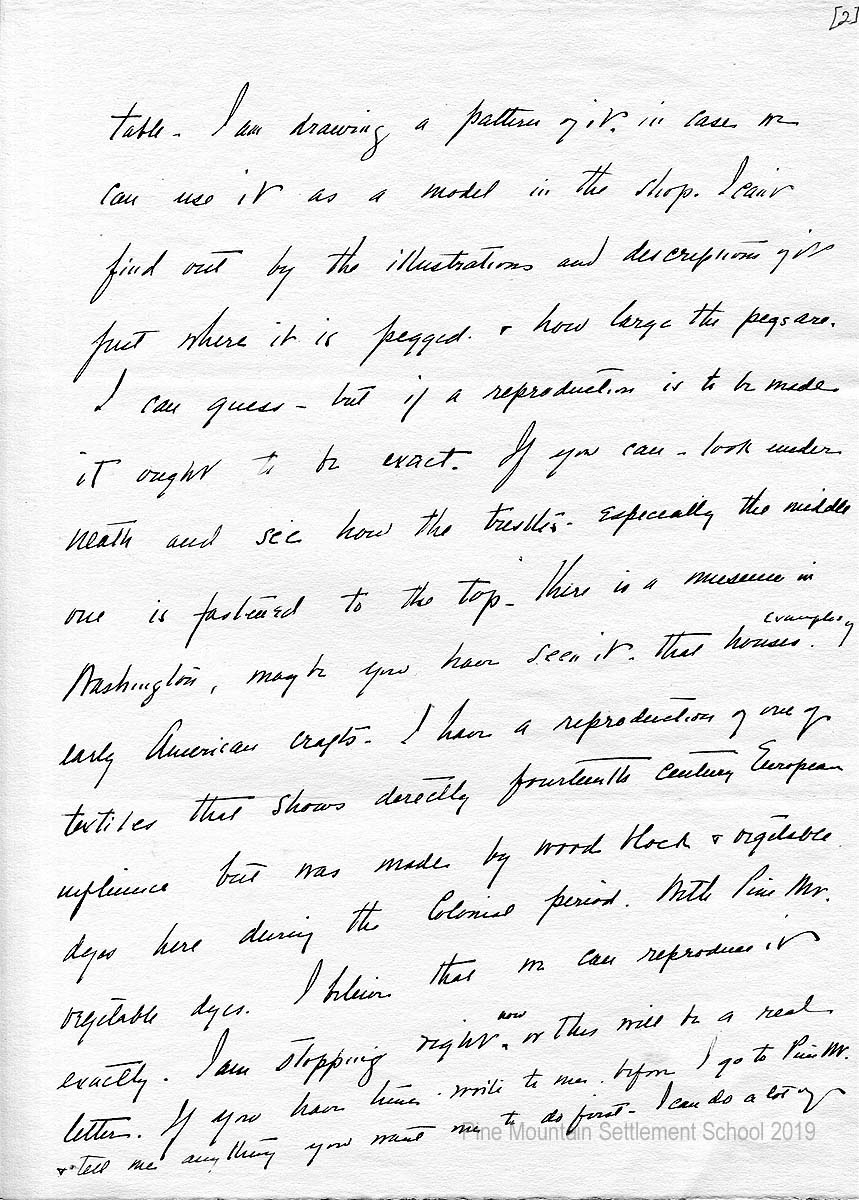 [2]
table - I am drawing a pattern of it, in case we
can use it as a model in the shop. I can't
find out by the illustrations and descriptions of it
just where it is pegged. & how large the pegs are.
I can guess - but if a reproduction is to be made
it ought to be exact. If you can - look under
neath and see how the trestles - especially the middle
one is fastened to the top - There is a museum in
Washington, maybe you have seen it - that houses examples of
early American crafts - I have a reproduction of one of
textiles that shows directly fourteenth century European
influence but was made by wood block & vegetable
dyes here during the Colonial period. With Pine Mt.
vegetable dyes. I believe that we can reproduce it
exactly. I am stopping right now or this will be a real
letter. If you have time - write to me before I go to Pine Mt.
& tell me anything you want me to do first - I can do a lot of
Pine Mountain Settlement School 2019